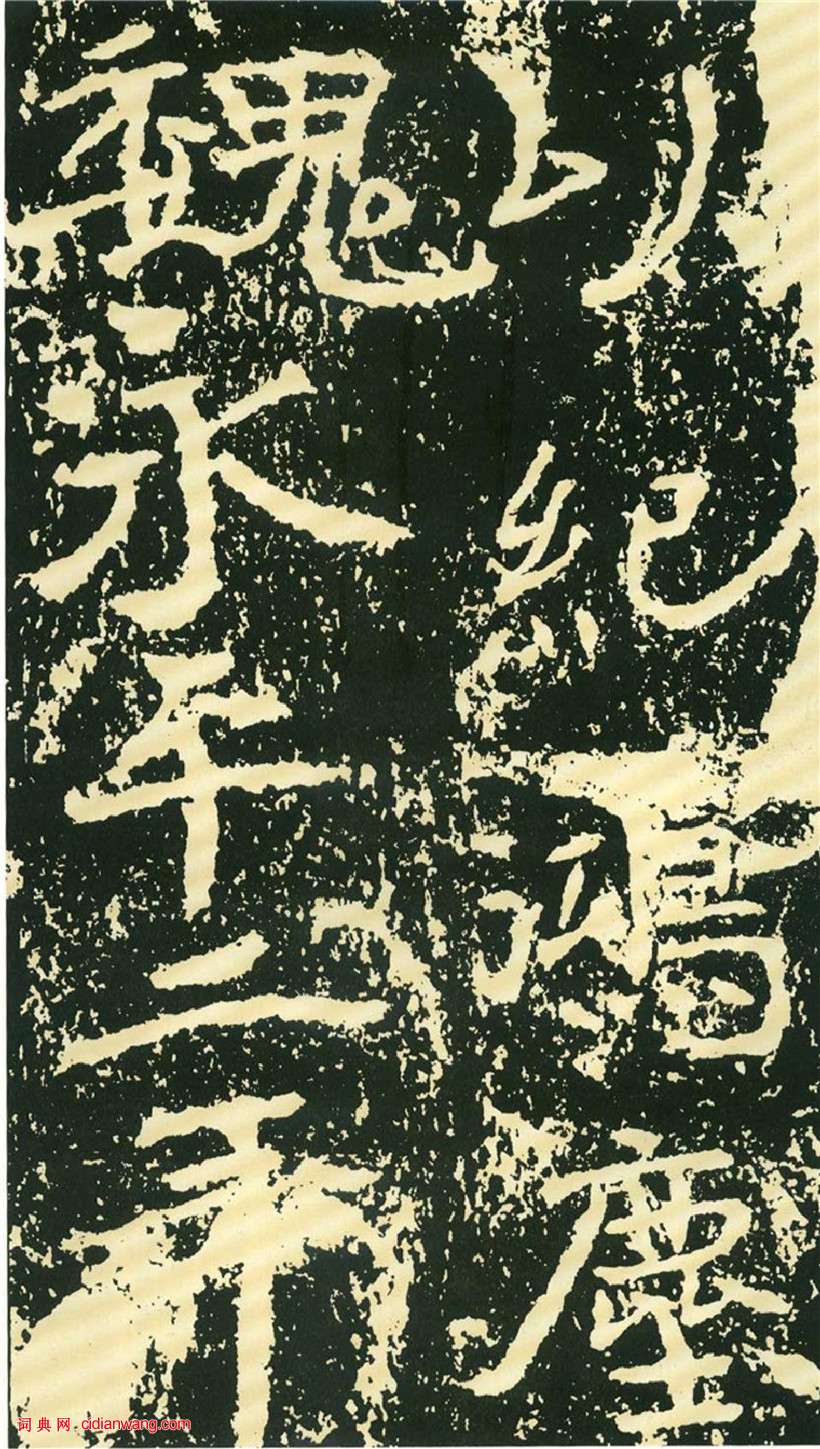 以紀鴻塵
魏永平二年
词典网 cidianwang.com